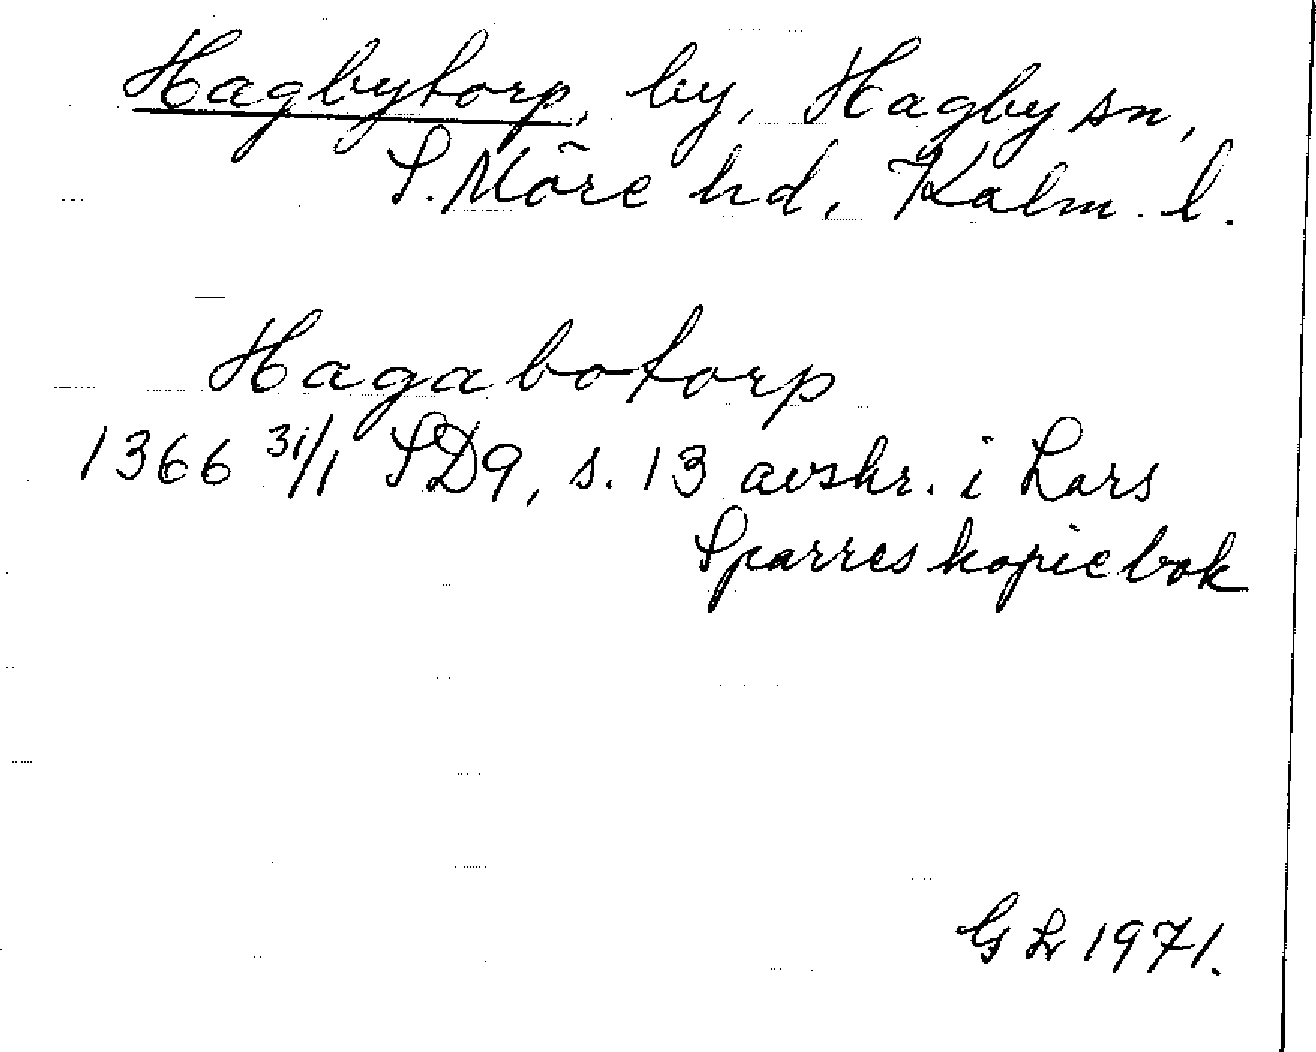 Hagbytorp, by, Hagby sn,
S. Möre hd, Kalm. l.
Hagabotorp
1366 31/1 SD9, s. 13 avskr. i Lars
Sparres kopiebok
GL 1971.